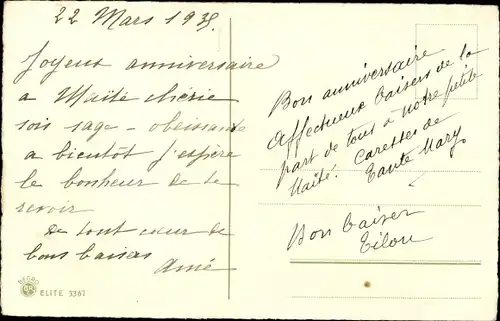 22 Mars 1935.
Joyeux anniversaire
a Maïté chérie
sois sage - obeissante
a bientôt j'espère
le bonheur de te
revoir
de tout cœur de
bons baisers
Aimé
Bon anniversaire
Affectueux baisers de la
part de tous à notre petite
Maïté. Caresses de
Tante Mary
Bon baiser
Tilou
DEDRO
ELITE 3367